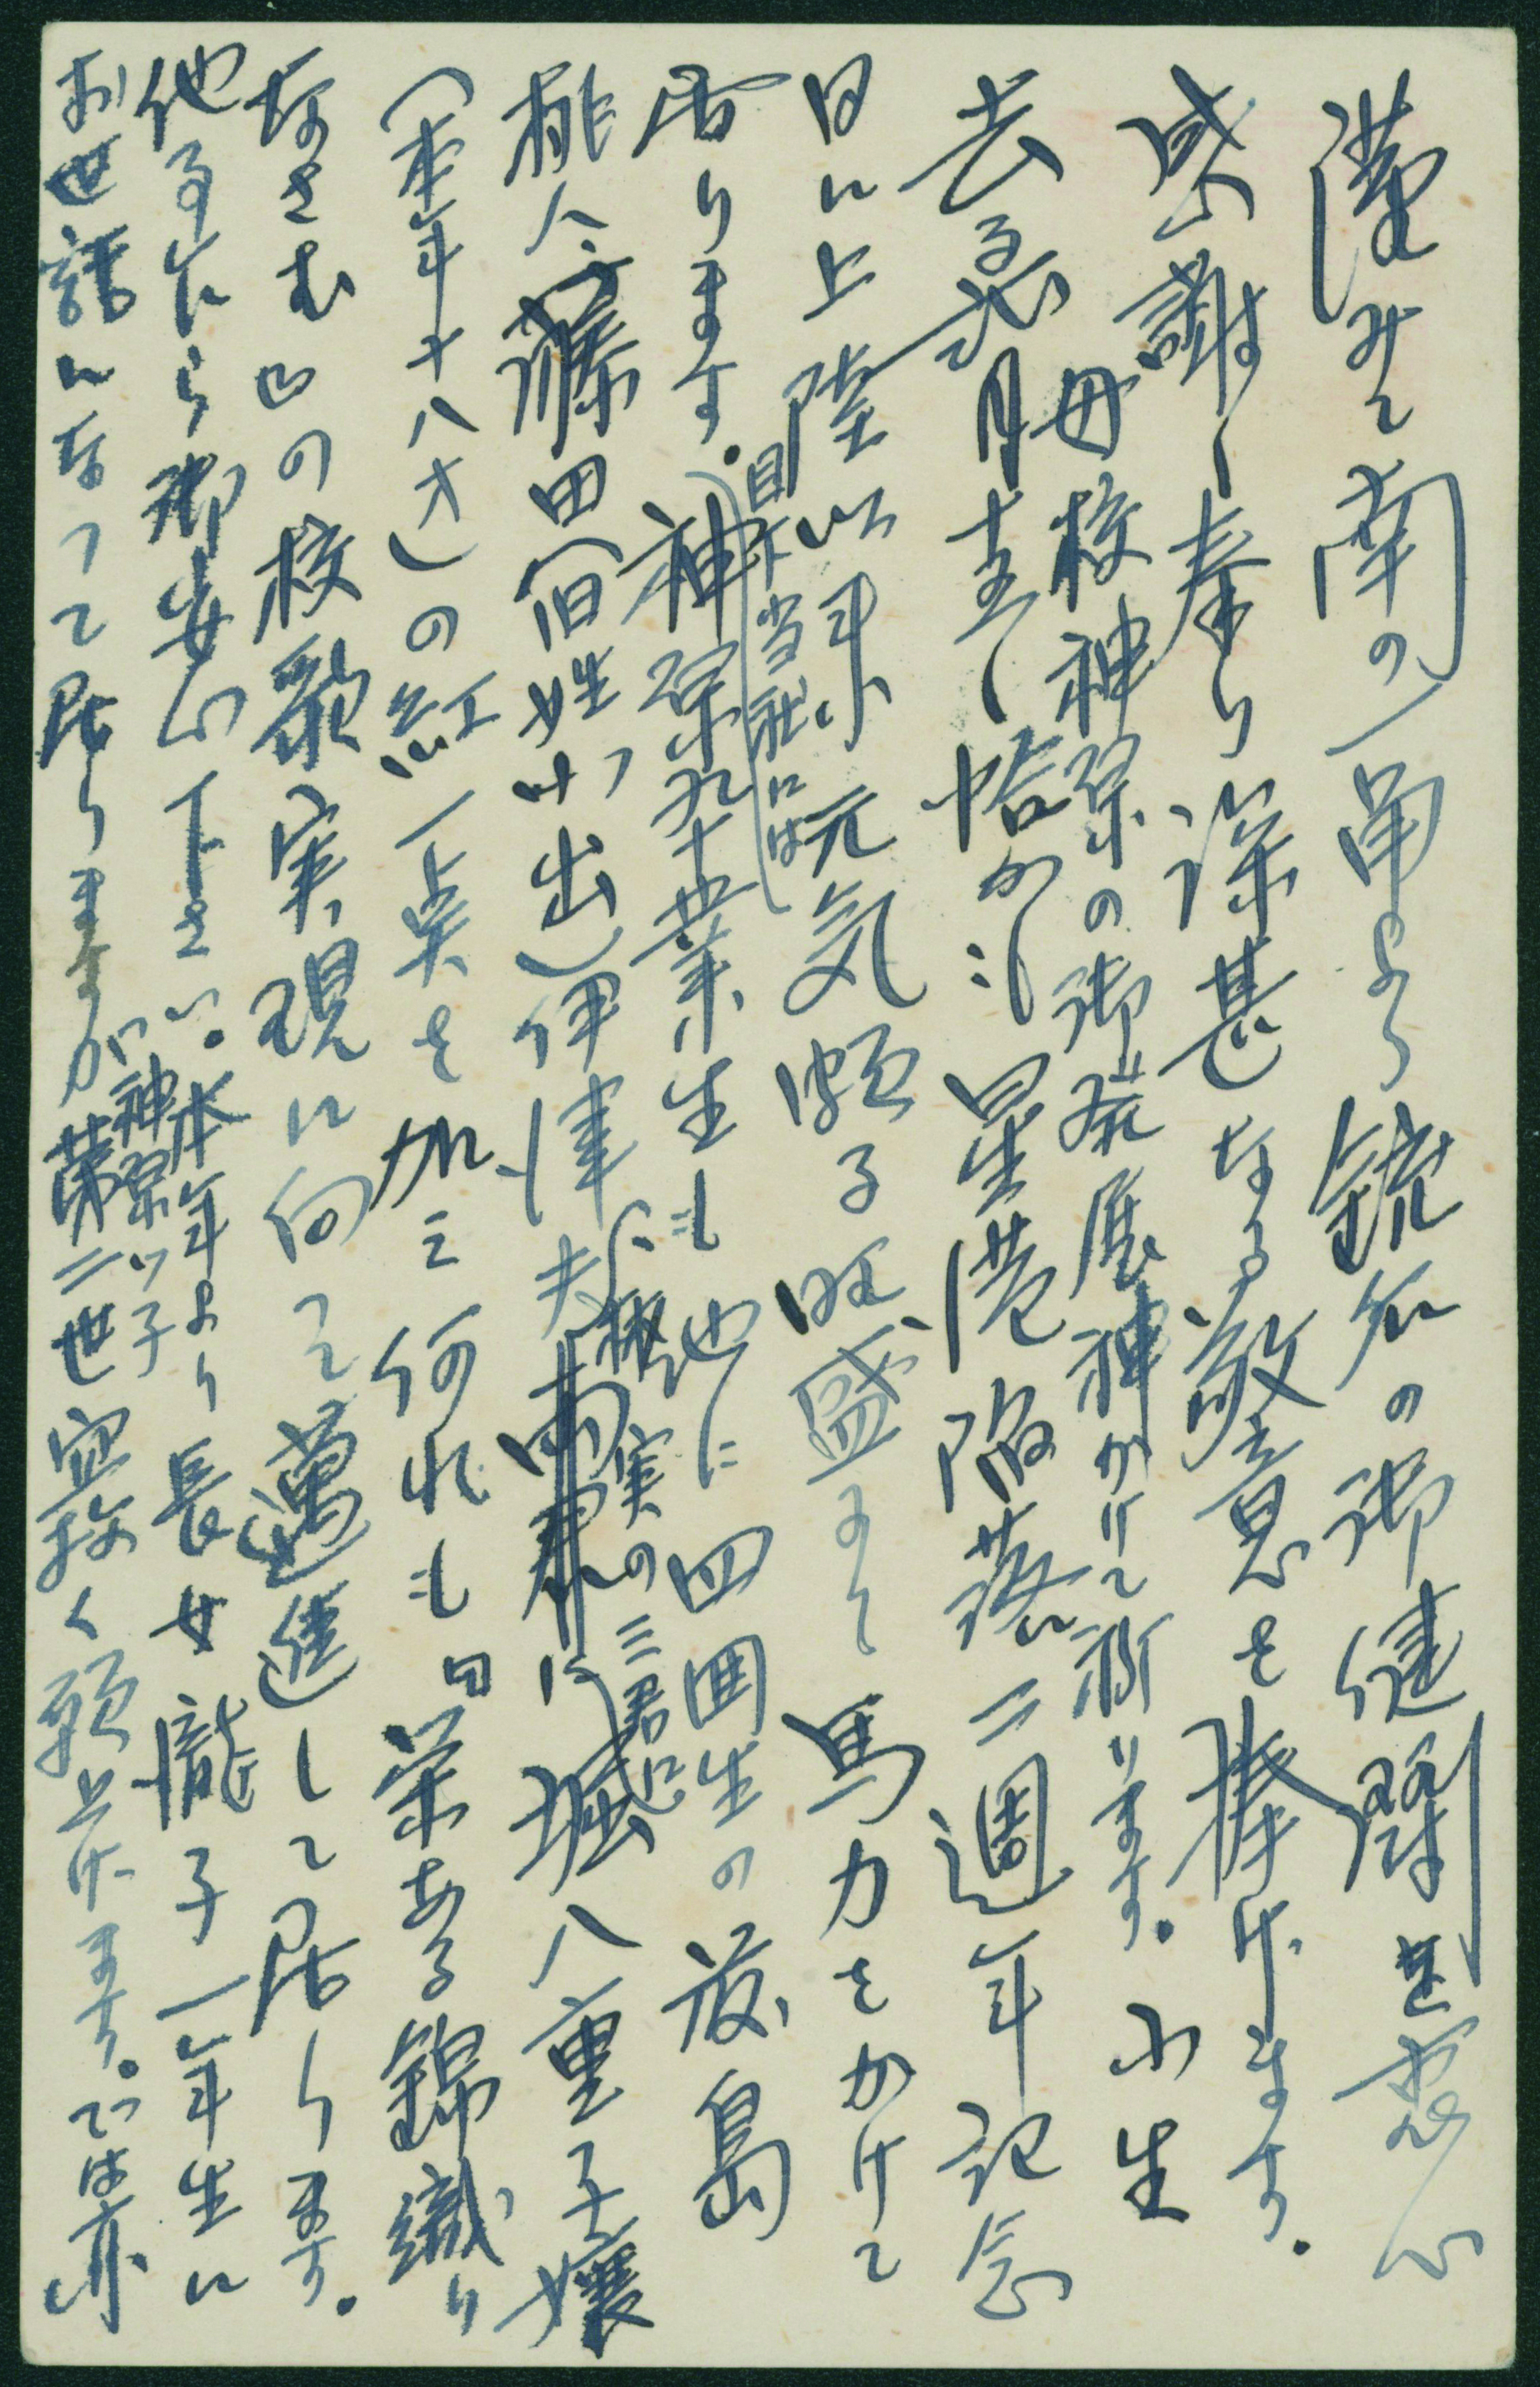 謹みて南の一角より銃后の御健闘を衷心
感謝し奉り深甚なる敬意を捧げます。
母校神泉の御発展神かけて祈ります。小生
去る弐月十五日恰かも星港陥落二週年記念
日に上陸以来元気頗る旺盛にて馬力をかけて
居ります。目下当社には神泉卒業生も他に四囲生の萩島
桃介、藤田(旧姓小出)伊津夫、板実の三君に堀八重子嬢
(本年十八才)の紅一点を加え何れも日栄ある錦織り
なさむの校歌実現に向って邁進して居ります。
他事乍ら御安心下さい。本年より長女龍子一年生に
お世話になって居りますが神泉ッ子第二世宜敷く願上げます。では亦